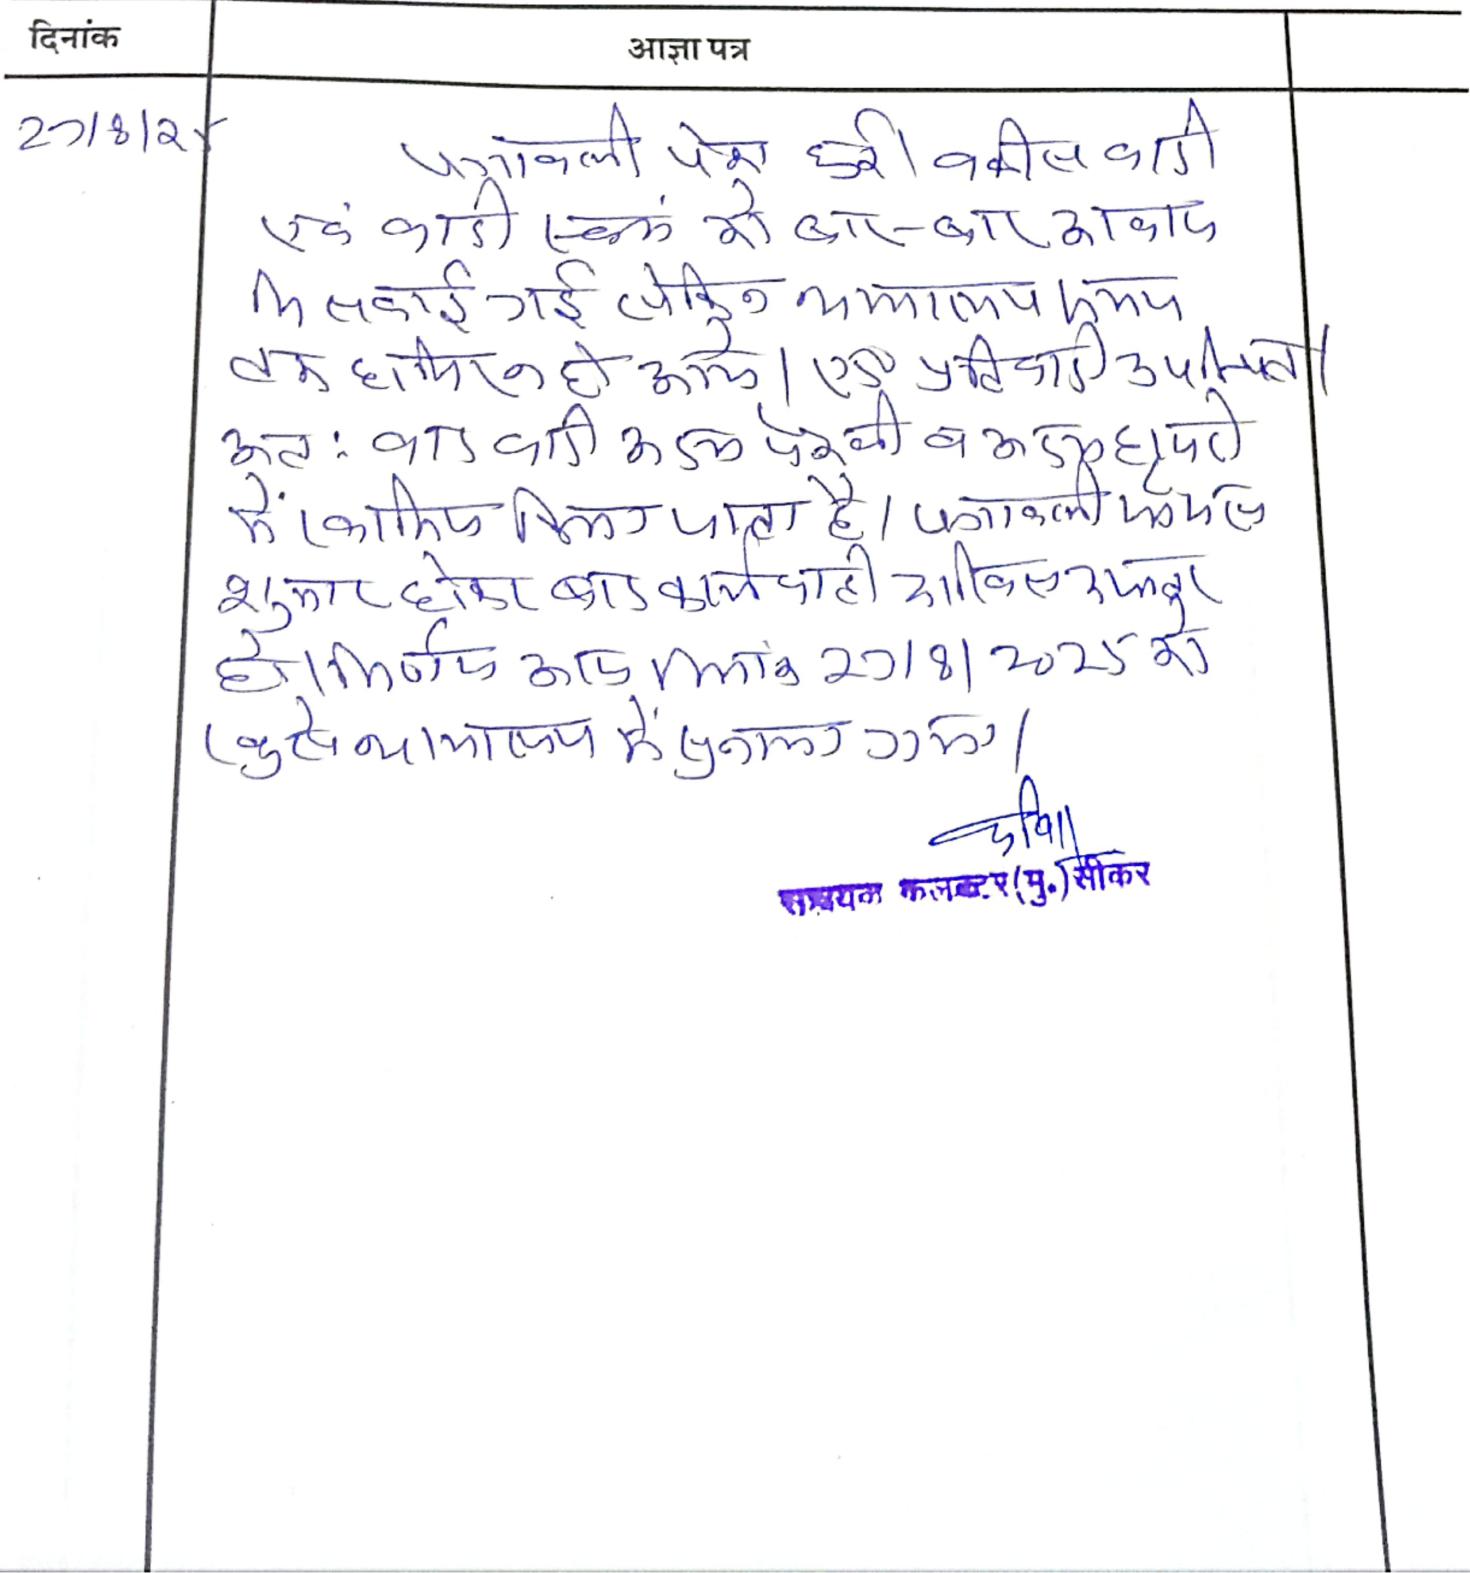 दिनांक
आज्ञा पत्र
27/8/25
पत्रावली पेश हुई। वकील वादी
एवं वादी स्वयं को बार-बार आवाज
लगवाई गई लेकिन न्यायालय समय
तक हाजिर न ही आये। एड० प्रतिवादी उपस्थित।
अतः वाद वादी अदम पैरवी व अदम हाजरी
में खारिज किया जाता है। पत्रावली फैसल
शुमार होकर बाद कार्यवाही दाखिल दफ्तर
हो। निर्णय आज दिनांक 27/8/2025 को
खुले न्यायालय में सुनाया गया।
सहायक कलक्टर (मु.) सीकर